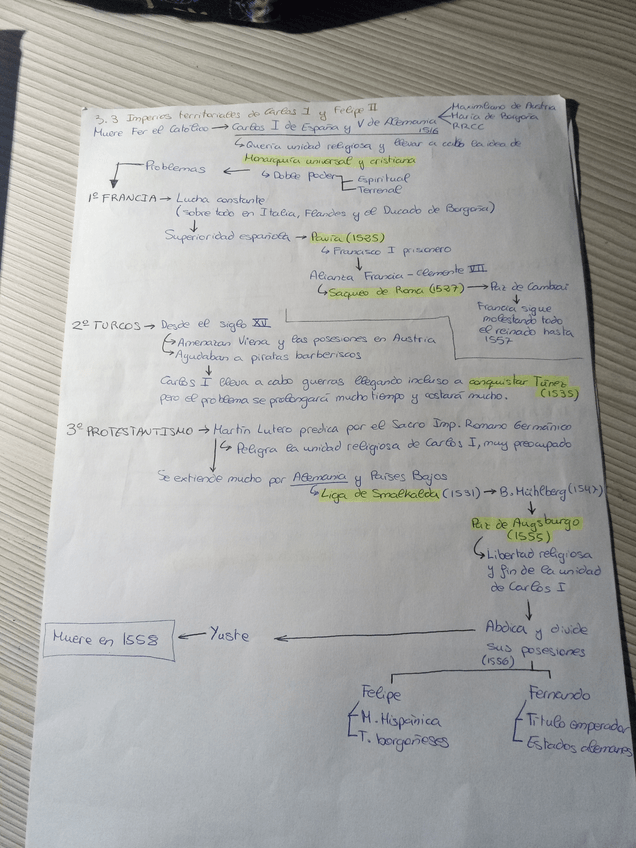 3.3 Imperios territoriales de Carlos I y Felipe II
Maximiliano de Austria
Muere Fer el Católico → Carlos I de España y V de Alemania
María de Borgoña
RR.CC
1516
↳ Quería unidad religiosa y llevar a cabo la idea de
Monarquía universal y cristiana
Problemas ← ↳ Doble poder
Espiritual
Terrenal
1º FRANCIA → Lucha constante
(sobre todo en Italia, Flandes y el Ducado de Borgoña)
Superioridad española → Pavía (1525)
↳ Francisco I prisionero
Alianza Francia - Clemente VII
↳ Saqueo de Roma (1527) → Paz de Cambrai
Francia sigue
molestando todo
el reinado hasta
1557
2º TURCOS → Desde el siglo XV
↳ Amenazan Viena y las posesiones en Austria
↳ Ayudaban a piratas barberiscos
Carlos I lleva a cabo guerras llegando incluso a conquistar Túnez
(1535)
pero el problema se prolongará mucho tiempo y costará mucho.
3º PROTESTANTISMO → Martín Lutero predica por el Sacro Imp. Romano Germánico
↳ Peligra la unidad religiosa de Carlos I, muy preocupado
Se extiende mucho por Alemania y Países Bajos
↳ Liga de Smalkalda (1531) → B. Mühlberg (1547)
Paz de Augsburgo
(1555)
↳ Libertad religiosa
y fin de la unidad
de Carlos I
Muere en 1558 ← Yuste ← Abdica y divide
sus posesiones
(1556)
Felipe
M. Hispánica
T. borgoñeses
Fernando
Título emperador
Estados alemanes